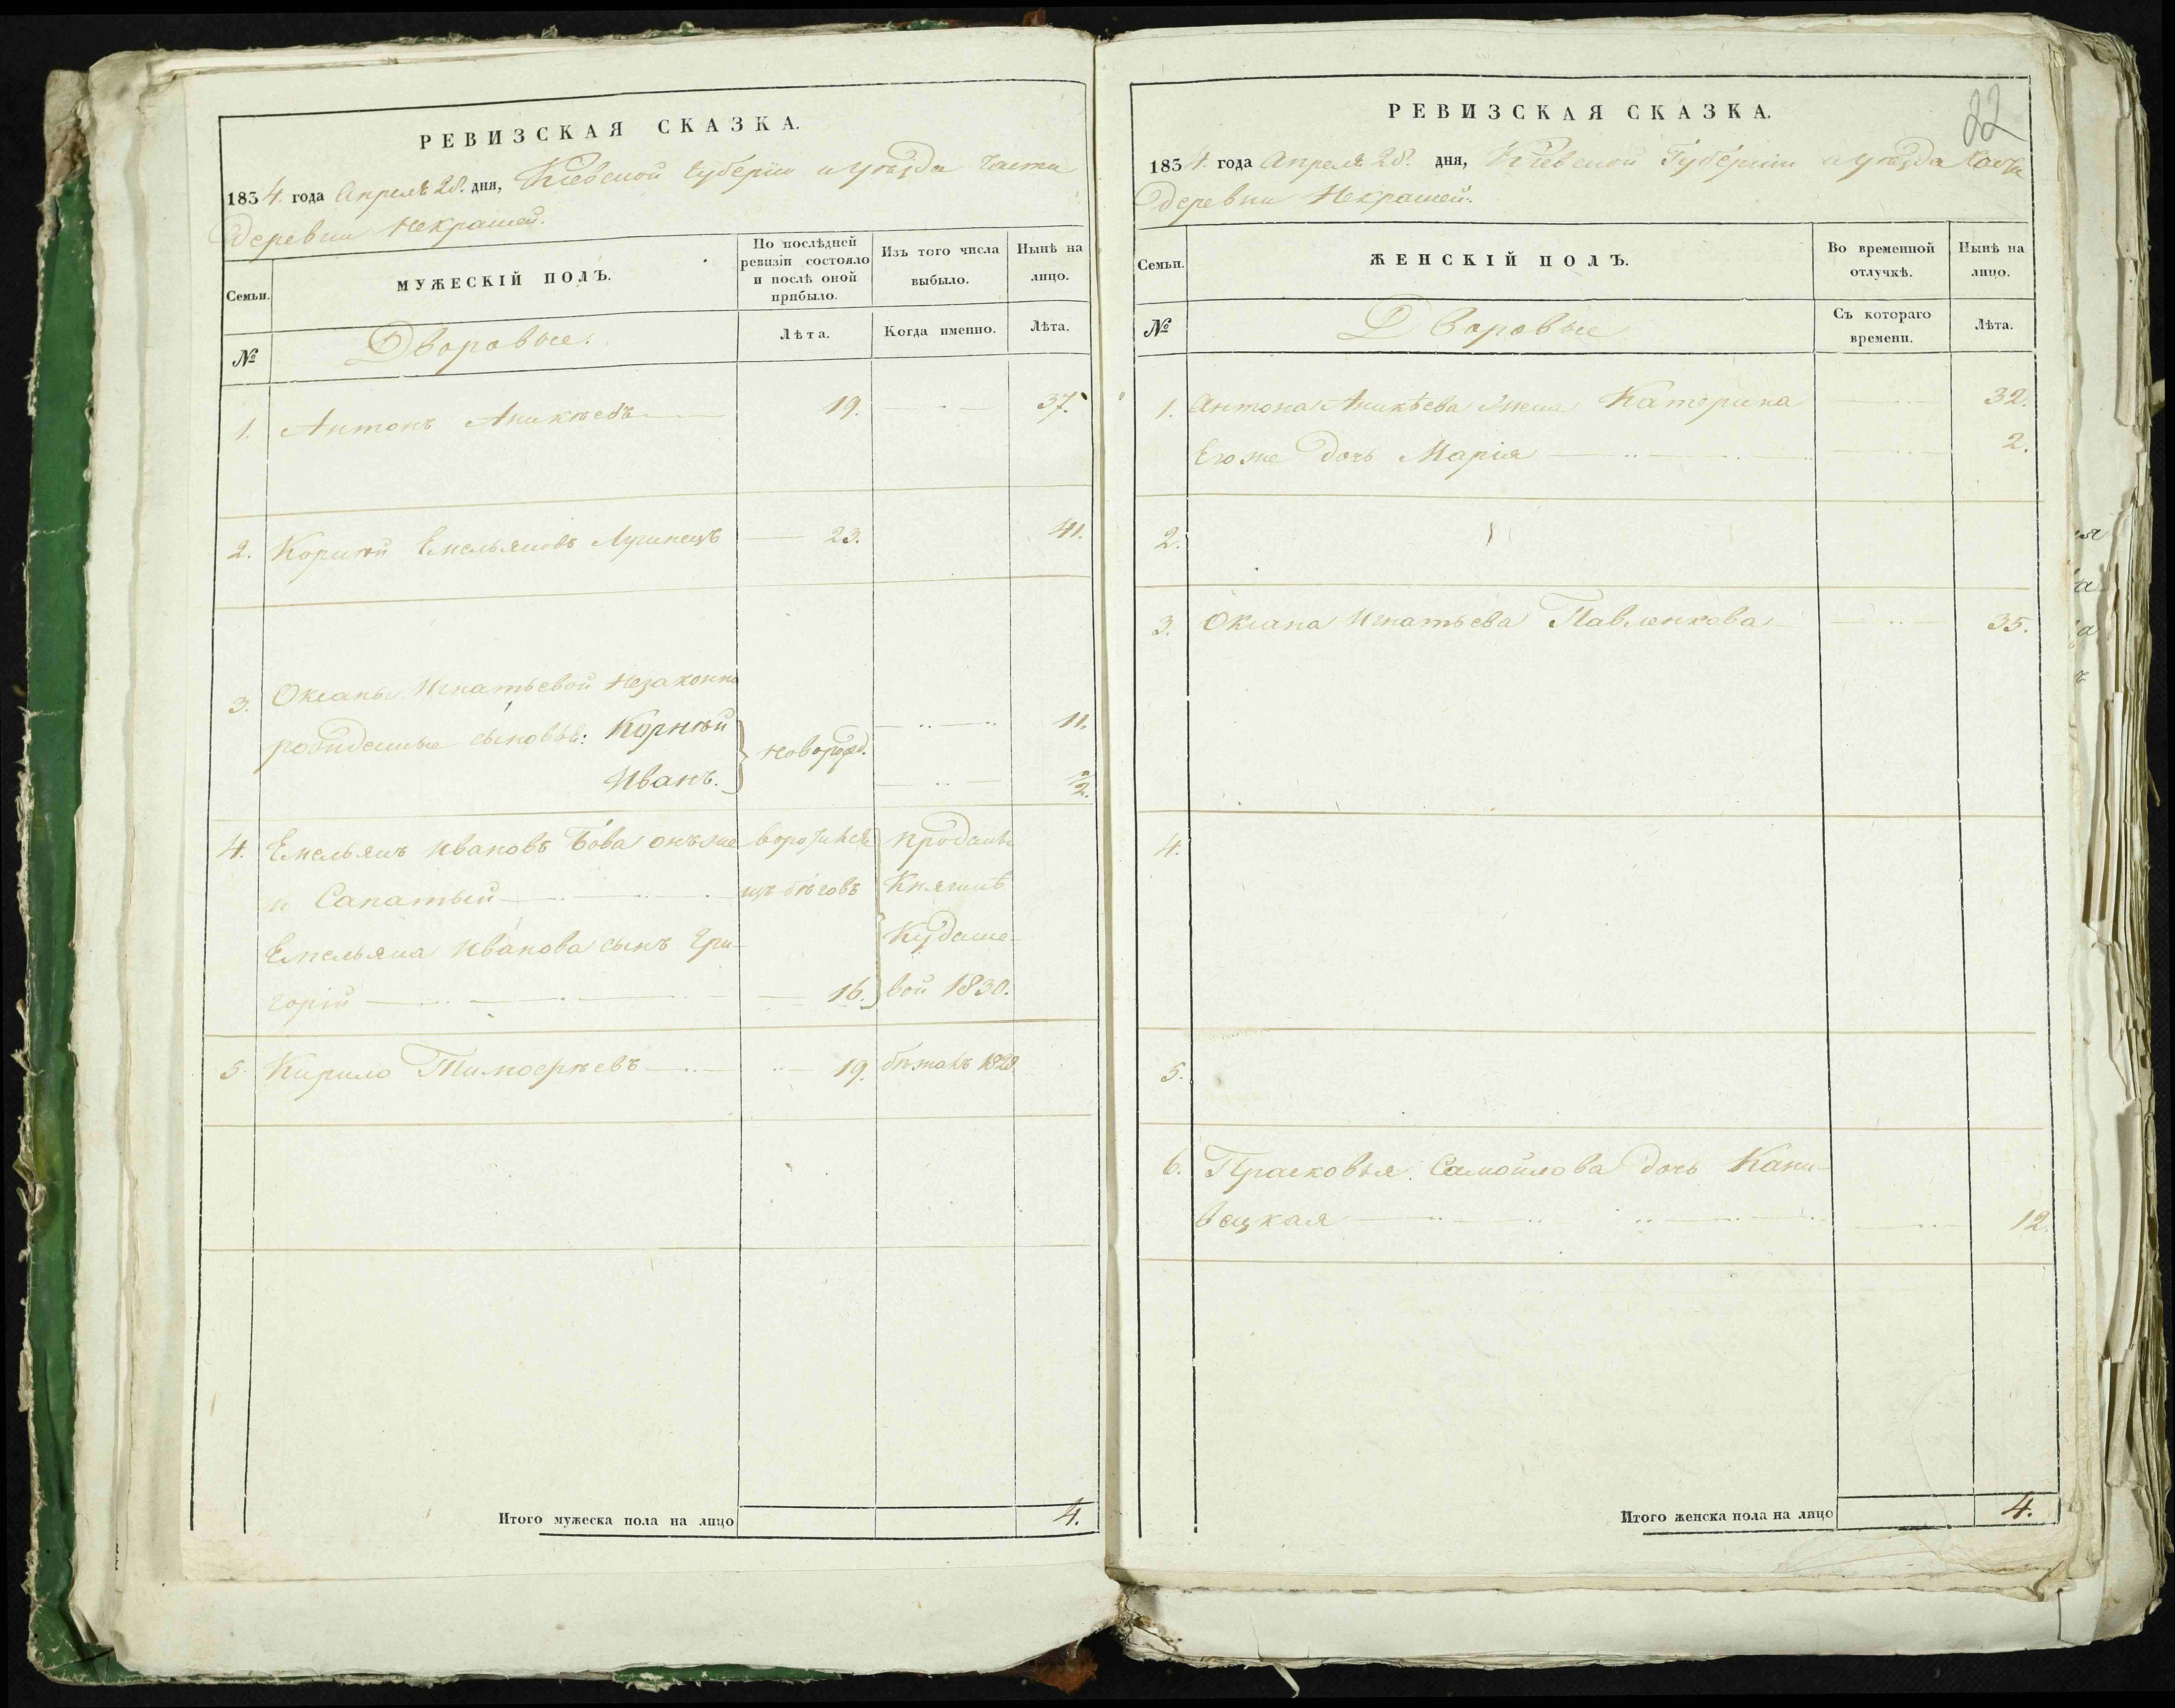 РЕВИЗСКАЯ СКАЗКА.
1834. года Апреля 28. дня, Кіевской Губерніи и уѣзда части
деревни Некрашей.
Семьи.
МУЖЕСКІЙ ПОЛЪ.
По послѣдней ревизіи состояло и послѣ оной прибыло.
Изъ того числа выбыло.
Нынѣ на лицо.
№
Дворовые.
Лѣта.
Когда именно.
Лѣта.
1. Антонъ Аникѣевъ 19. 37.
2. Корнѣй Емельяновъ 23. 41.
3. Оксаны Игнатьевой незаконно
рожденные сыновья: Корнѣй 11.
новорожд.
Иванъ. 1/2.
4. Емельянъ Ивановъ Бова онъ же воротился проданы
и Сапатый изъ бѣговъ Княгинѣ
Емельяна Иванова сынъ Гри- Кудаше-
горій 16. вой 1830.
5. Кирило Тимофѣевъ 19. бѣжалъ 1828.
Итого мужеска пола на лицо 4.
22
РЕВИЗСКАЯ СКАЗКА.
1834. года Апреля 28. дня, Кіевской Губерніи и уѣзда части
деревни Некрашей.
Семьи.
ЖЕНСКІЙ ПОЛЪ.
Во временной отлучкѣ.
Нынѣ на лицо.
№
Дворовые
Съ котораго времени.
Лѣта.
1. Антона Аникѣева жена Катерина 32.
Его же дочь Марія 2.
2.
3. Оксана Игнатьева Павленкова 35.
4.
5.
6. Прасковья Самойлова дочь Кани-
вецкая 12.
Итого женска пола на лицо 4.